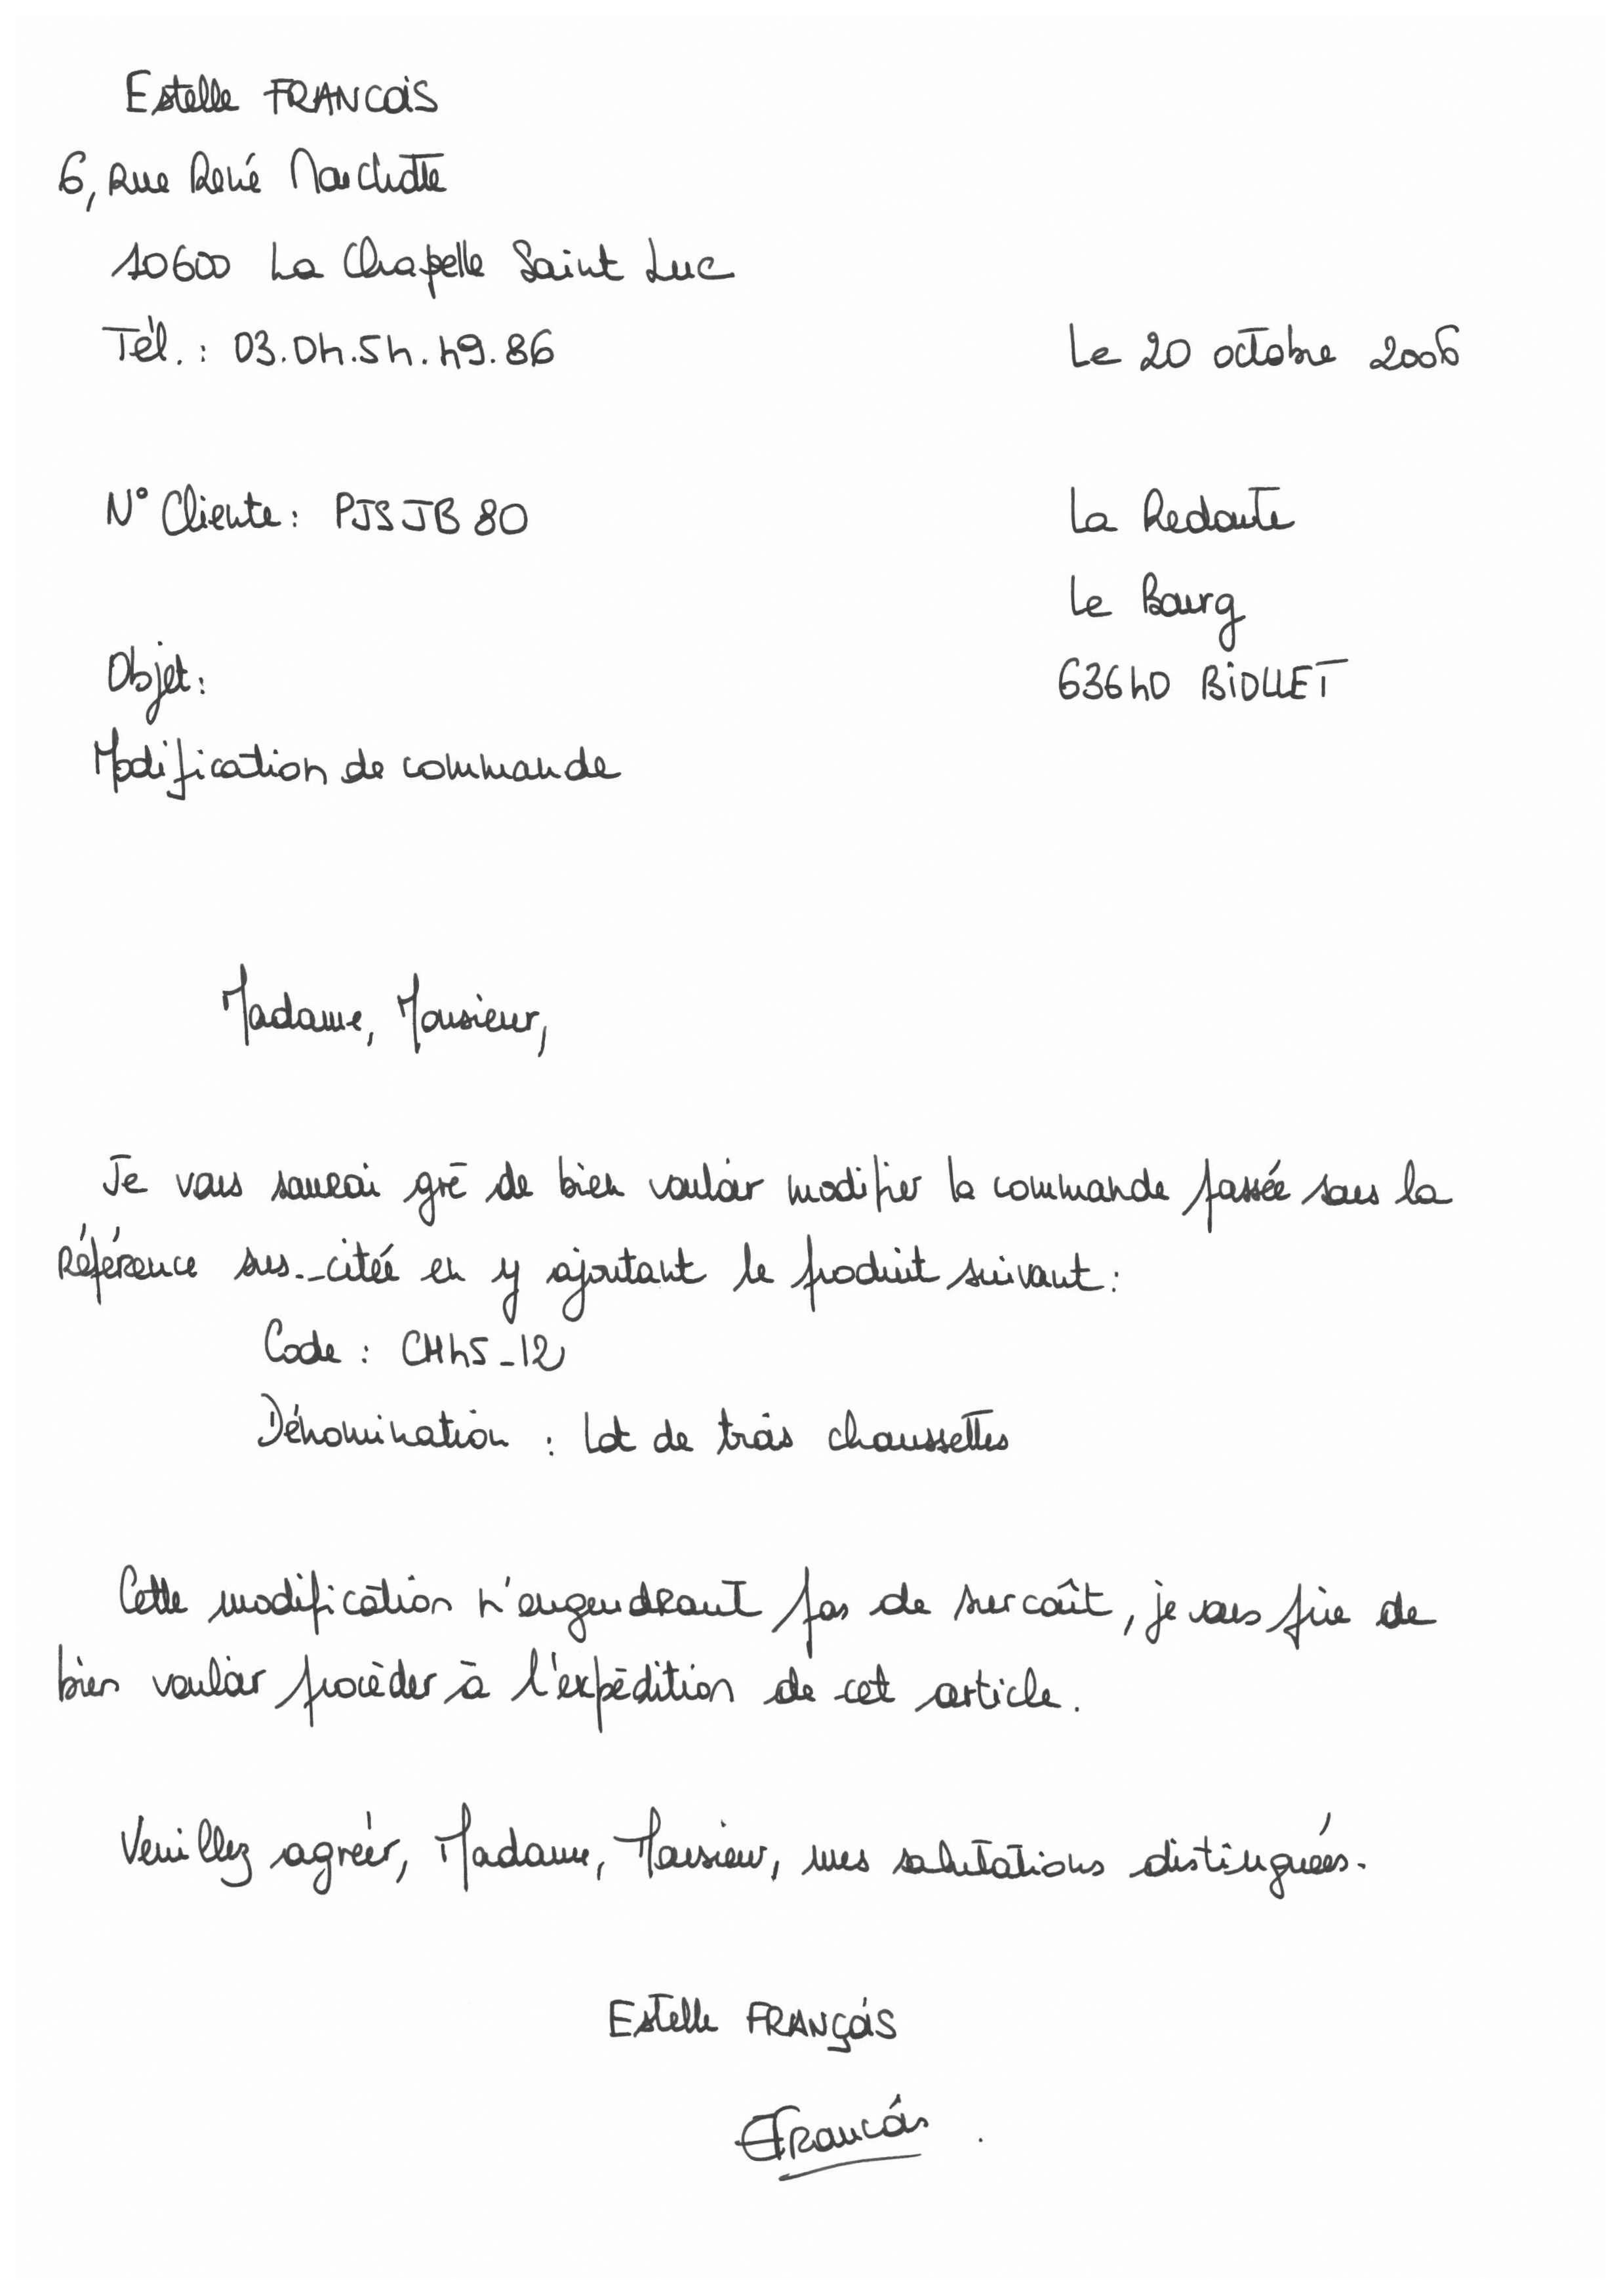 Estelle FRANCOIS
6, Rue René Marchotte
10600 La Chapelle Saint Luc
Tél. : 03.04.54.49.86
Le 20 octobre 2006
N° Cliente : PJSJB80
La Redoute
Le Bourg
63640 BIOLLET
Objet :
Modification de commande
Madame, Monsieur,
Je vous saurai gré de bien vouloir modifier la commande passée sous la
Référence sus-citée en y ajoutant le produit suivant :
Code : CH45-12
Dénomination : Lot de trois chaussettes
Cette modification n'engendrant pas de surcoût, je vous prie de
bien vouloir procéder à l'expédition de cet article.
Veuillez agréer, Madame, Monsieur, mes salutations distinguées.
Estelle FRANÇOIS
EFrancois